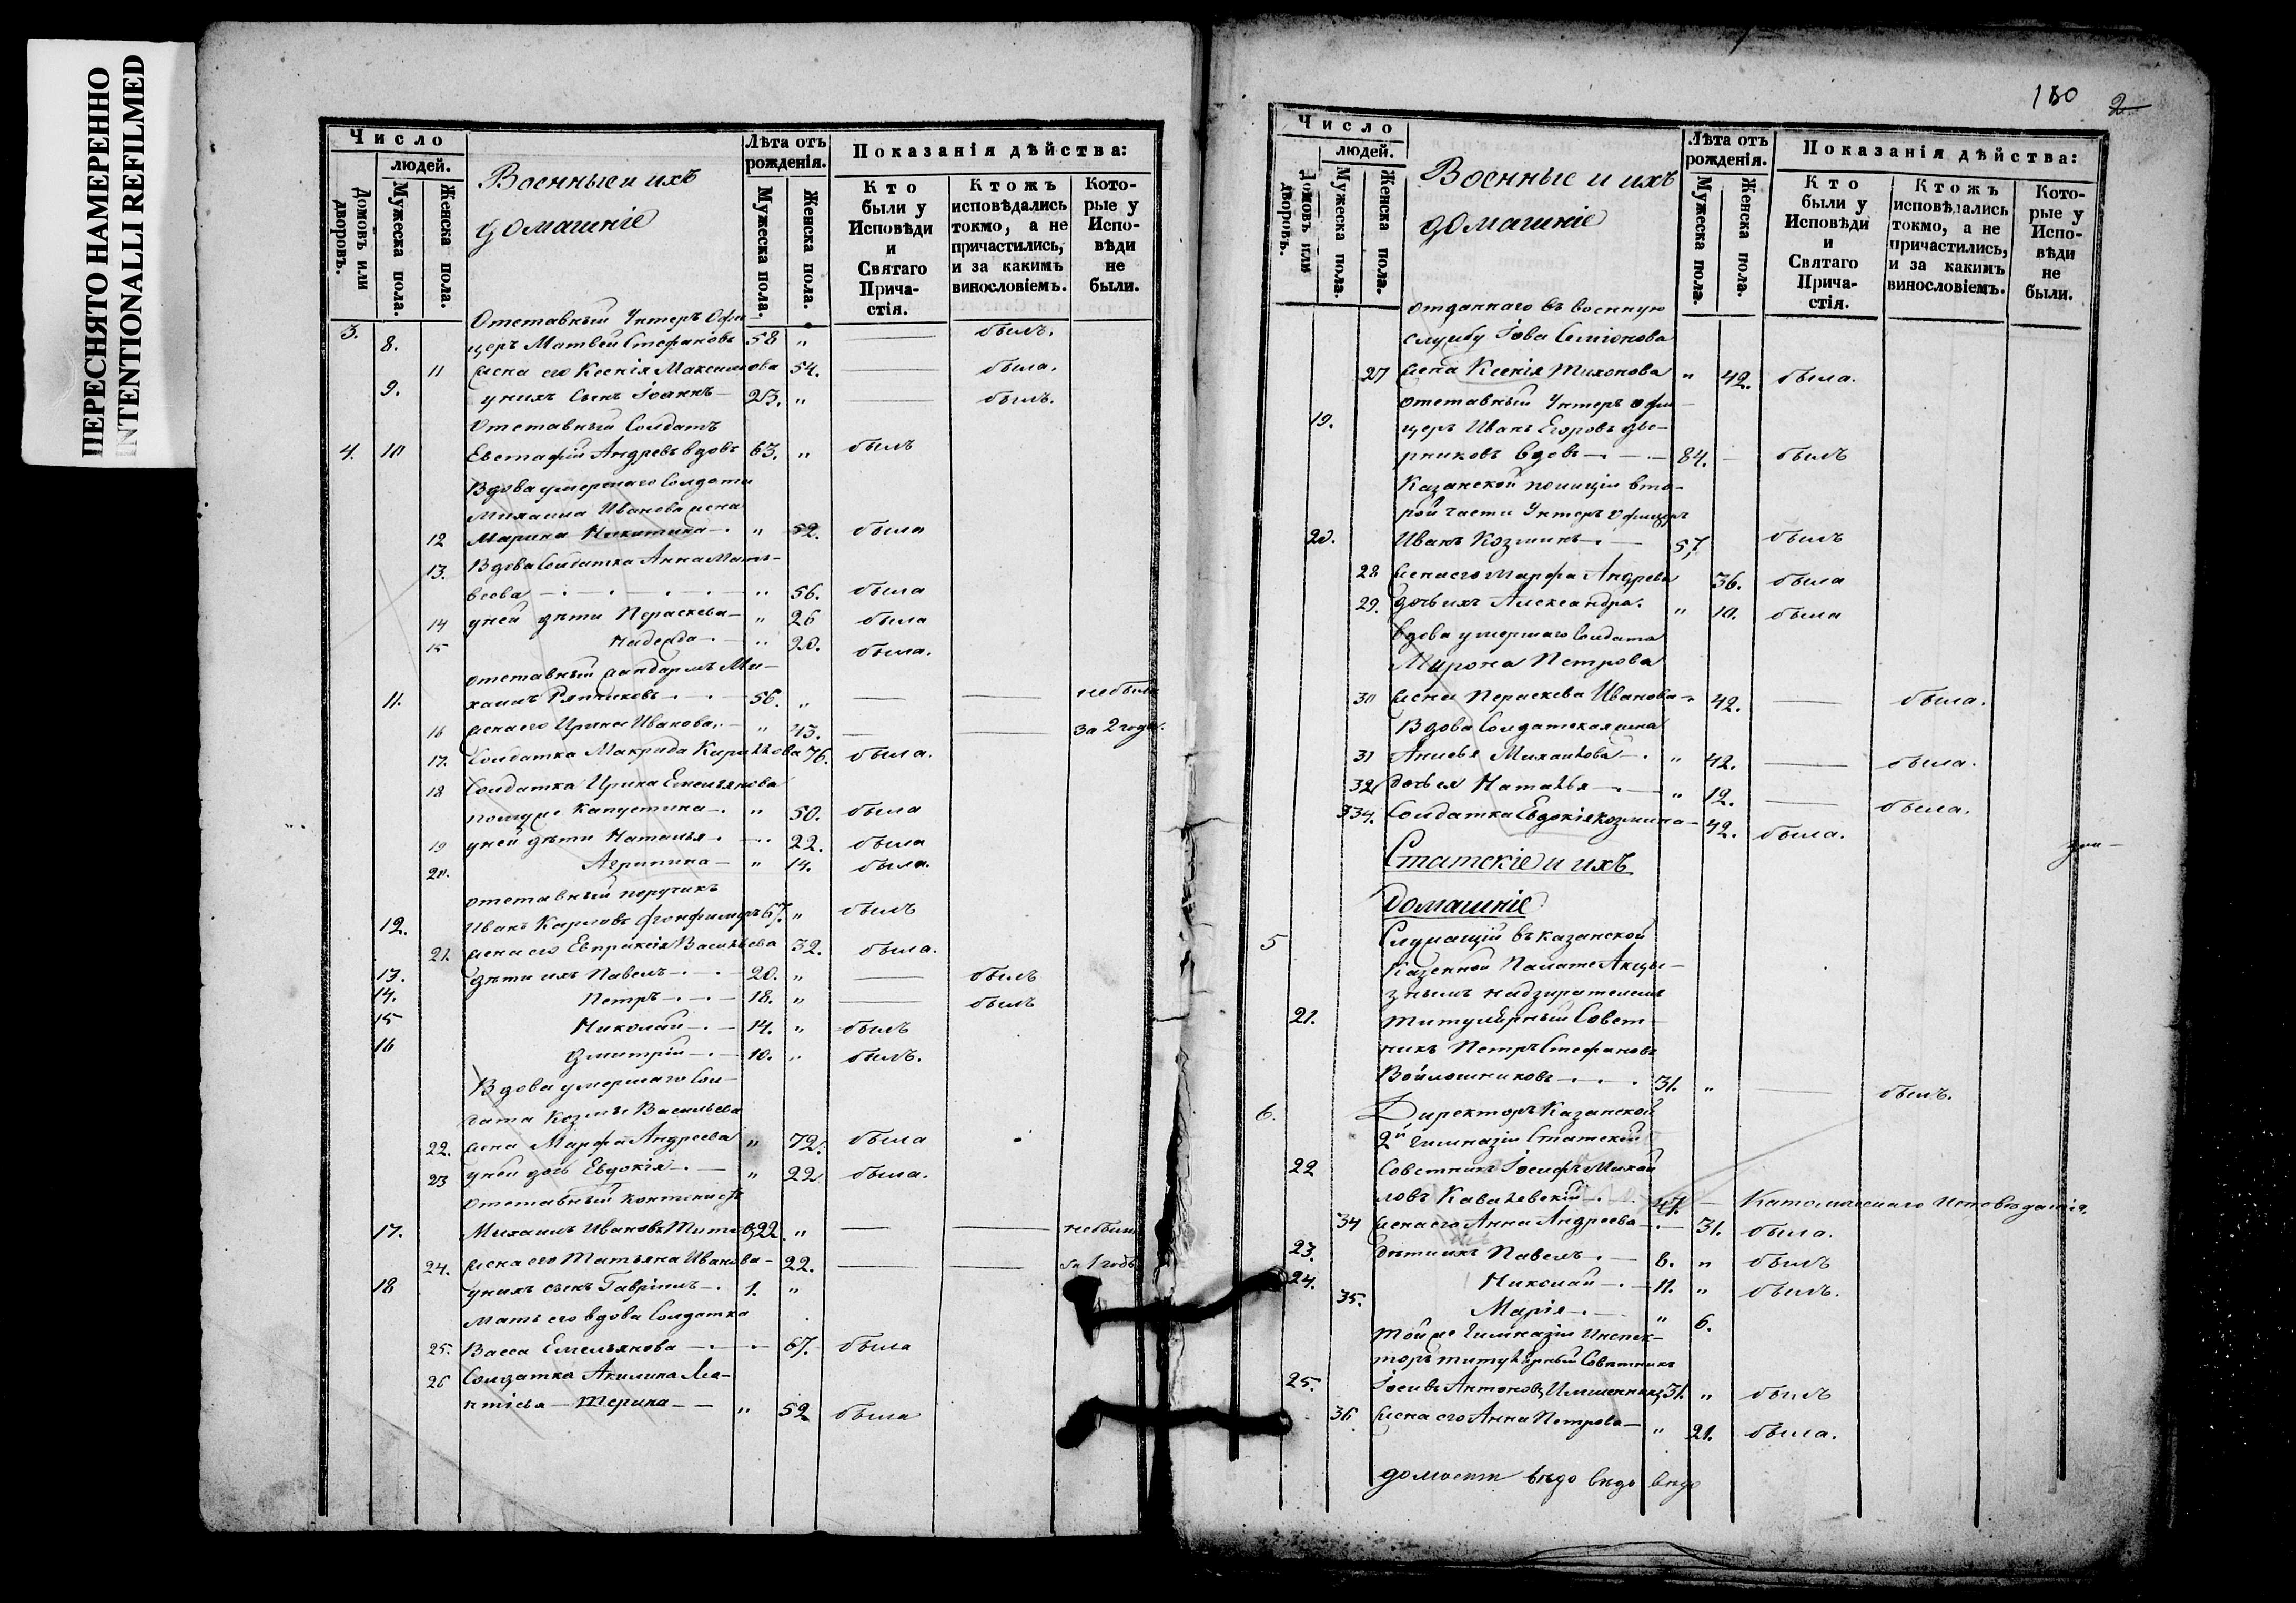 ПЕРЕСНЯТО НАМЕРЕННО
INTENTIONALLI REFILMED
Число
людей.
Домовъ или дворовъ.
Мужеска пола.
Женска пола.
Военные и ихъ
домашніе
Лѣта отъ рожденія.
Мужеска пола.
Женска пола.
Показанія дѣйства:
Кто были у Исповѣди и Святаго Причастія.
Ктожъ исповѣдались токмо, а не причастились, и за какимъ винословіемъ.
Которые у Исповѣди не были.
Отставный Унтеръ Офи-
3. 8. церъ Матвей Стефановъ 58 „ — былъ.
11 жена его Ксенія Максимова 54. — была.
9. у нихъ сынъ Іоаннъ — 23. „ — былъ.
Отставный Солдатъ
4. 10 Евстафій Андреевъ вдовъ 63. „ былъ
Вдова умершаго Солдата
Михаила Иванова жена
12 Марина Никитина — „ 52. была
13. Вдова Солдатка Анна Мат-
веева — „ 56. была
14 у ней дѣти Параскева — „ 26 была
15 Надежда — „ 20. была.
отставный жандармъ Ми-
11. хаилъ — 56. „ — — небылъ
16 жена его Ирина Иванова. — „ 43. — — за 2 года.
17. Солдатка Макрида Кирилова 76. была.
18 Солдатка Ирина Емельянова
помуже Капустина — „ 50. была
19 у ней дѣти Наталья — 22. была
20. Агрипина — „ 14. была.
отставный поручикъ
12. Иванъ Карловъ 67. „ былъ
21. жена его Евпраксія Васильева 32. была.
13. дѣти ихъ Павелъ — 20. „ — былъ
14. Петръ — 18. „ — былъ
15 Николай — 14. „ былъ
16 Дмитрій — 10. „ былъ.
Вдова умершаго Сол-
дата Козмы Васильева
22. жена Марфа Андреева „ 72. была
23 у ней дочь Евдокія — „ 22 была.
отставный
17. Михаилъ Ивановъ Титовъ 22. „ — — небылъ
24. жена его Татьяна Иванова — 22. — — за 1 годъ
18 у нихъ сынъ Гавріилъ — 1. „
Мать его вдова Солдатка
25. Васса Емельянова — 67. была
26 Солдатка Акилина Ле-
нтіева — „ 52 была
180 2
Число
людей.
Домовъ или дворовъ.
Мужеска пола.
Женска пола.
Военные и ихъ
домашніе
Лѣта отъ рожденія.
Мужеска пола.
Женска пола.
Показанія дѣйства:
Кто были у Исповѣди и Святаго Причастія.
Ктожъ исповѣдались токмо, а не причастились, и за какимъ винословіемъ.
Которые у Исповѣди не были.
отданнаго въ военную
службу Іова Семіонова
27 жена Ксенія Тихонова „ 42. была.
отставный Унтеръ Офи-
19. церъ Иванъ Егоровъ Две-
рниковъ вдовъ — 84. — былъ
Казанской полиціи вто-
рой части Унтеръ Офицеръ
20. Иванъ Козминъ — 57 былъ
28 жена его Марфа Андреева 36. была
29. дочь ихъ Александра. „ 10. была
вдова умершаго Солдата
Мирона Петрова
30 жена Параскева Иванова — 42. — была.
Вдова Солдатская жена
31 Анисья Михайлова — „ 42. — была.
32 дочь ея Наталья — „ 12. — была.
334. Солдатка Евдокія Козмина — 42. была.
Статскіе и ихъ
Домашніе
5 Служащій въ казанской
Казенной Палате Акци-
знымъ надзирателемъ
21. титулярный Совет-
никъ Петръ Стефановъ
Войлошниковъ — 31. „ — былъ.
6. Директоръ Казанской
2й гимназіи Статскій
22 Советникъ Іосифъ Михай
ловъ Кавалевскій — 47. — Католическаго Исповѣданія.
34 жена его Анна Андреева — 31. была.
23. дѣти ихъ Павелъ — 8. „ былъ
24. Николай — 11. „ былъ.
35. Марія — „ 6.
той же гимназіи Инспек-
торъ титулярный Советникъ
25. Іосифъ Антоновъ 31. „ былъ
36. жена его Анна Петрова — „ 21. была.